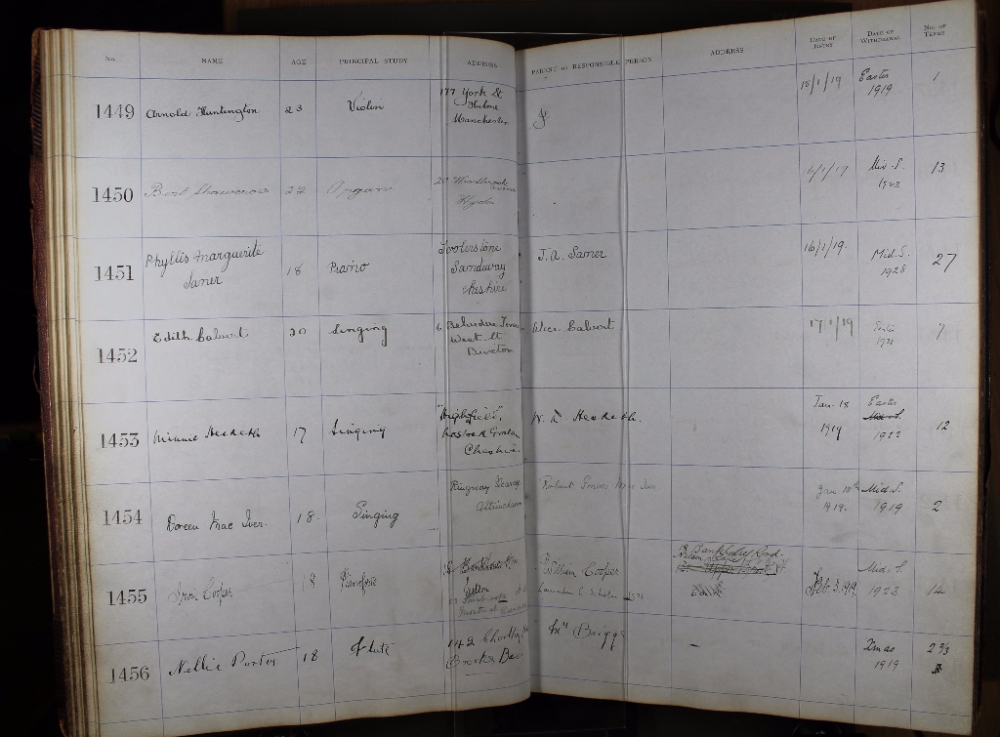 No. NAME AGE PRINCIPAL STUDY ADDRESS PARENT or RESPONSIBLE PERSON ADDRESS DATE OF ENTRY DATE OF WITHDRAWAL No. OF TERMS
1449 Arnold Huntington 23 Violin 177 York St 15/1/19 Easter 1
Hulme 1919
Manchester
1450 22 Organ Mid-S. 13
Hyde
1451 Phyllis Marguerite 18 Piano J. A. Saner 16/1/19. Mid-S. 27
Saner Sandiway 1928
Cheshire
1452 Edith Calvert 20 Singing 6 Belvedere Alice Calvert 17/1/19 7
West St.
1453 Minnie Hesketh 17 Singing "Highfield", Hesketh. Jan. 18 Easter 12
Lostock Gralam 1919 Mid-S
Cheshire. 1922
1454 Doreen Mac Iver. 18. Singing Ringway Vicarage Robert Mac Iver Jan 18th Mid-S. 2
Altrincham 1919. 1919
1455 Cooper 18 Pianoforte William Cooper Feb. 3. 1919 Mid-S 12
1923
1456 Nellie Porter 18 Flute 142 Chorley Briggs – Xmas 2 2/3
Brooks Bar 1919